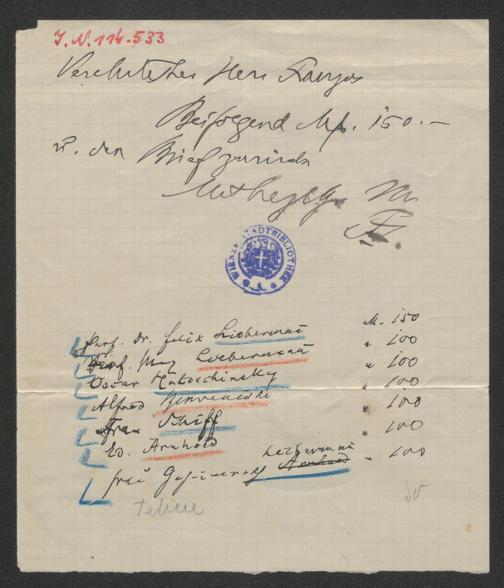 J. N. 114.533
Verehrtester Herr Franzos
Beifolgend Mk. 150.–
u. den Brief zurück
WIENER STADTBIBLIOTHEK
Prof. Dr. Felix Liebermann M. 150
Prof. Max Liebermann " 100
Oscar Huldschinsky " 100
Alfred " 100
Frau Schiff " 100
Ed. Arnhold " 100
Frau Liebermann " 100